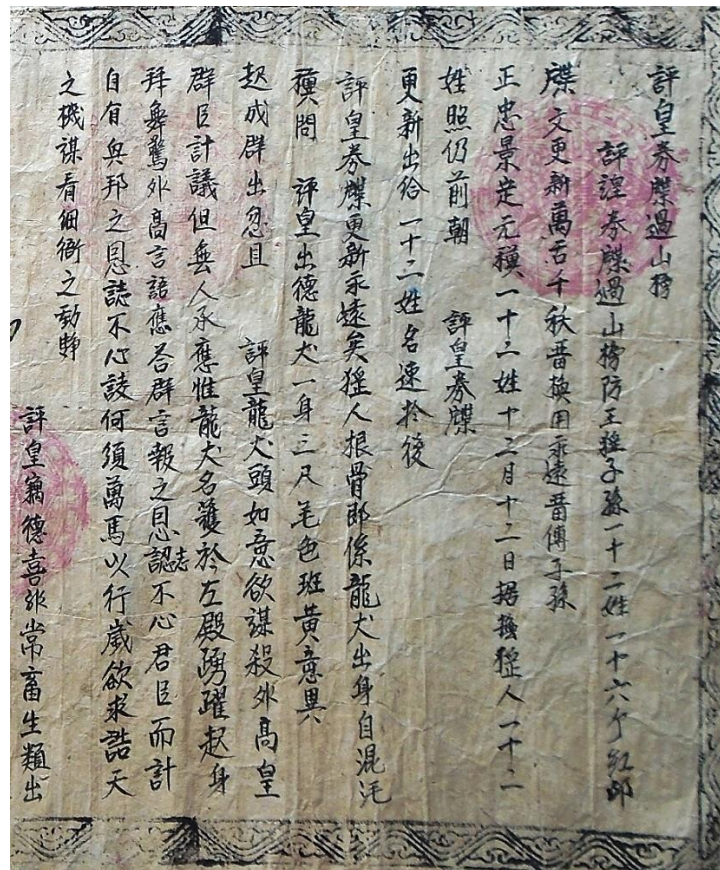 評皇券牒過山榜
評湟券牒過山榜防王猺子孫一十二姓一十六个紅印
牒文更新萬古千秋晋換用永遠晋傳子孫
正忠景定元積一十二姓十二月十二日招撫猺人一十二
姓照仍前朝 評皇券牒
更新出給一十二姓名速於後
評皇券牒更新永遠矣猺人根骨即係龍犬出身自混沌
積問 評皇出德龍犬一身三尺毛色班黃意異
超成群出忽且 評皇龍犬頭如意欲謀殺外高皇
群臣計議但無人承應惟龍犬名護於左殿踴躍起身
拜舞驚外高言語應答群言報之恩認志不心君臣而計
自有與邦之恩誌不心該何須萬馬以行歲欲求誥天
之機謀看細衛之動静
評皇竊德喜非常畜生類出